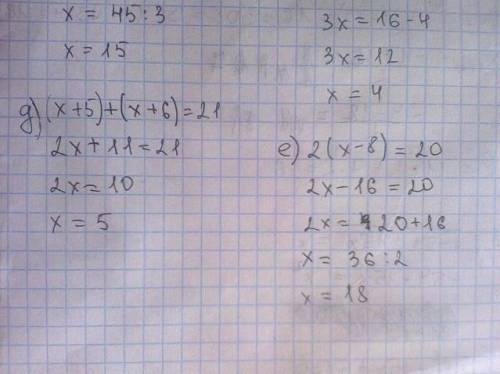 x = 45 : 3
x = 15
3x = 16 - 4
3x = 12
x = 4
д) (x + 5) + (x + 6) = 21
2x + 11 = 21
2x = 10
x = 5
е) 2(x - 8) = 20
2x - 16 = 20
2x = 20 + 16
x = 36 : 2
x = 18